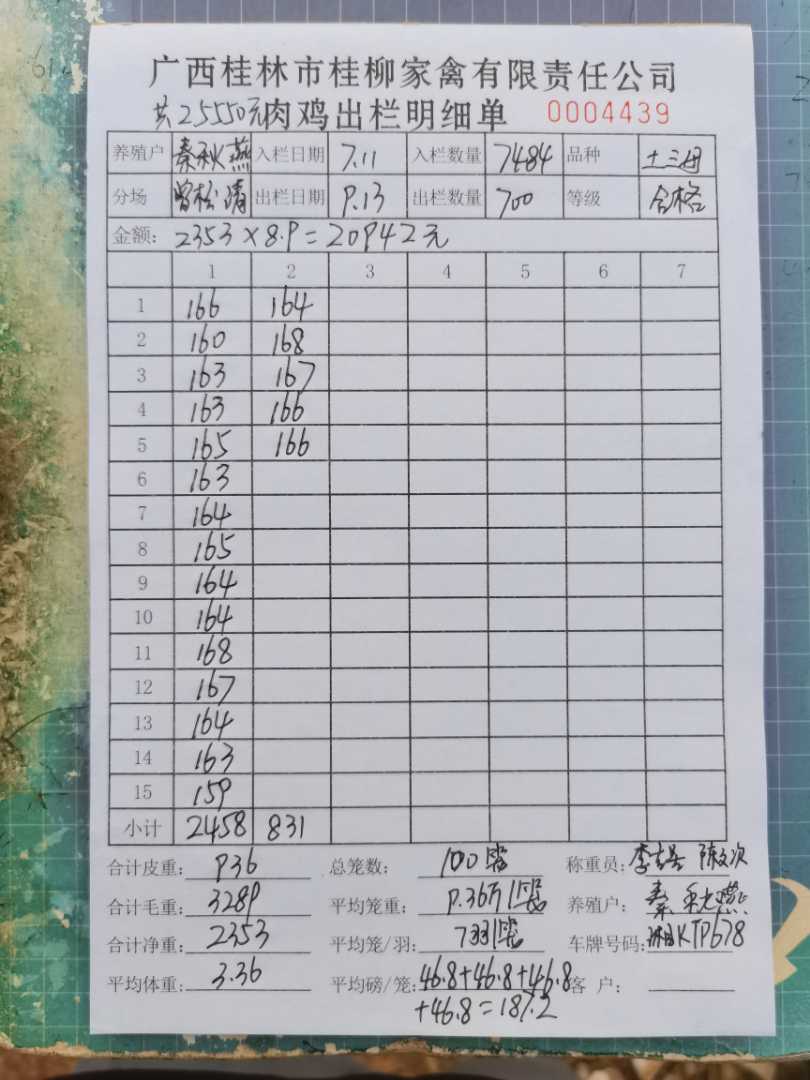 广西桂林市桂柳家禽有限责任公司
共25550元 肉鸡出栏明细单 0004439
养殖户 秦秋燕 入栏日期 7.11 入栏数量 7484 品种 土三母
分场 曾松清 出栏日期 9.13 出栏数量 700 等级 合格
金额: 2353×8.9=20942元
1 2 3 4 5 6 7
1 166 164
2 160 168
3 163 167
4 163 166
5 165 166
6 163
7 164
8 165
9 164
10 164
11 168
12 167
13 164
14 163
15 159
小计 2458 831
合计皮重: 936 总笼数: 100笼 称重员:
合计毛重: 3289 平均笼重: 9.36斤/笼 养殖户: 秦秋燕
合计净重: 2353 平均笼/羽: 7羽/笼 车牌号码: 湘KTP678
平均体重: 3.36 平均磅/笼: 46.8+46.8+46.8 客户:
+46.8=187.2